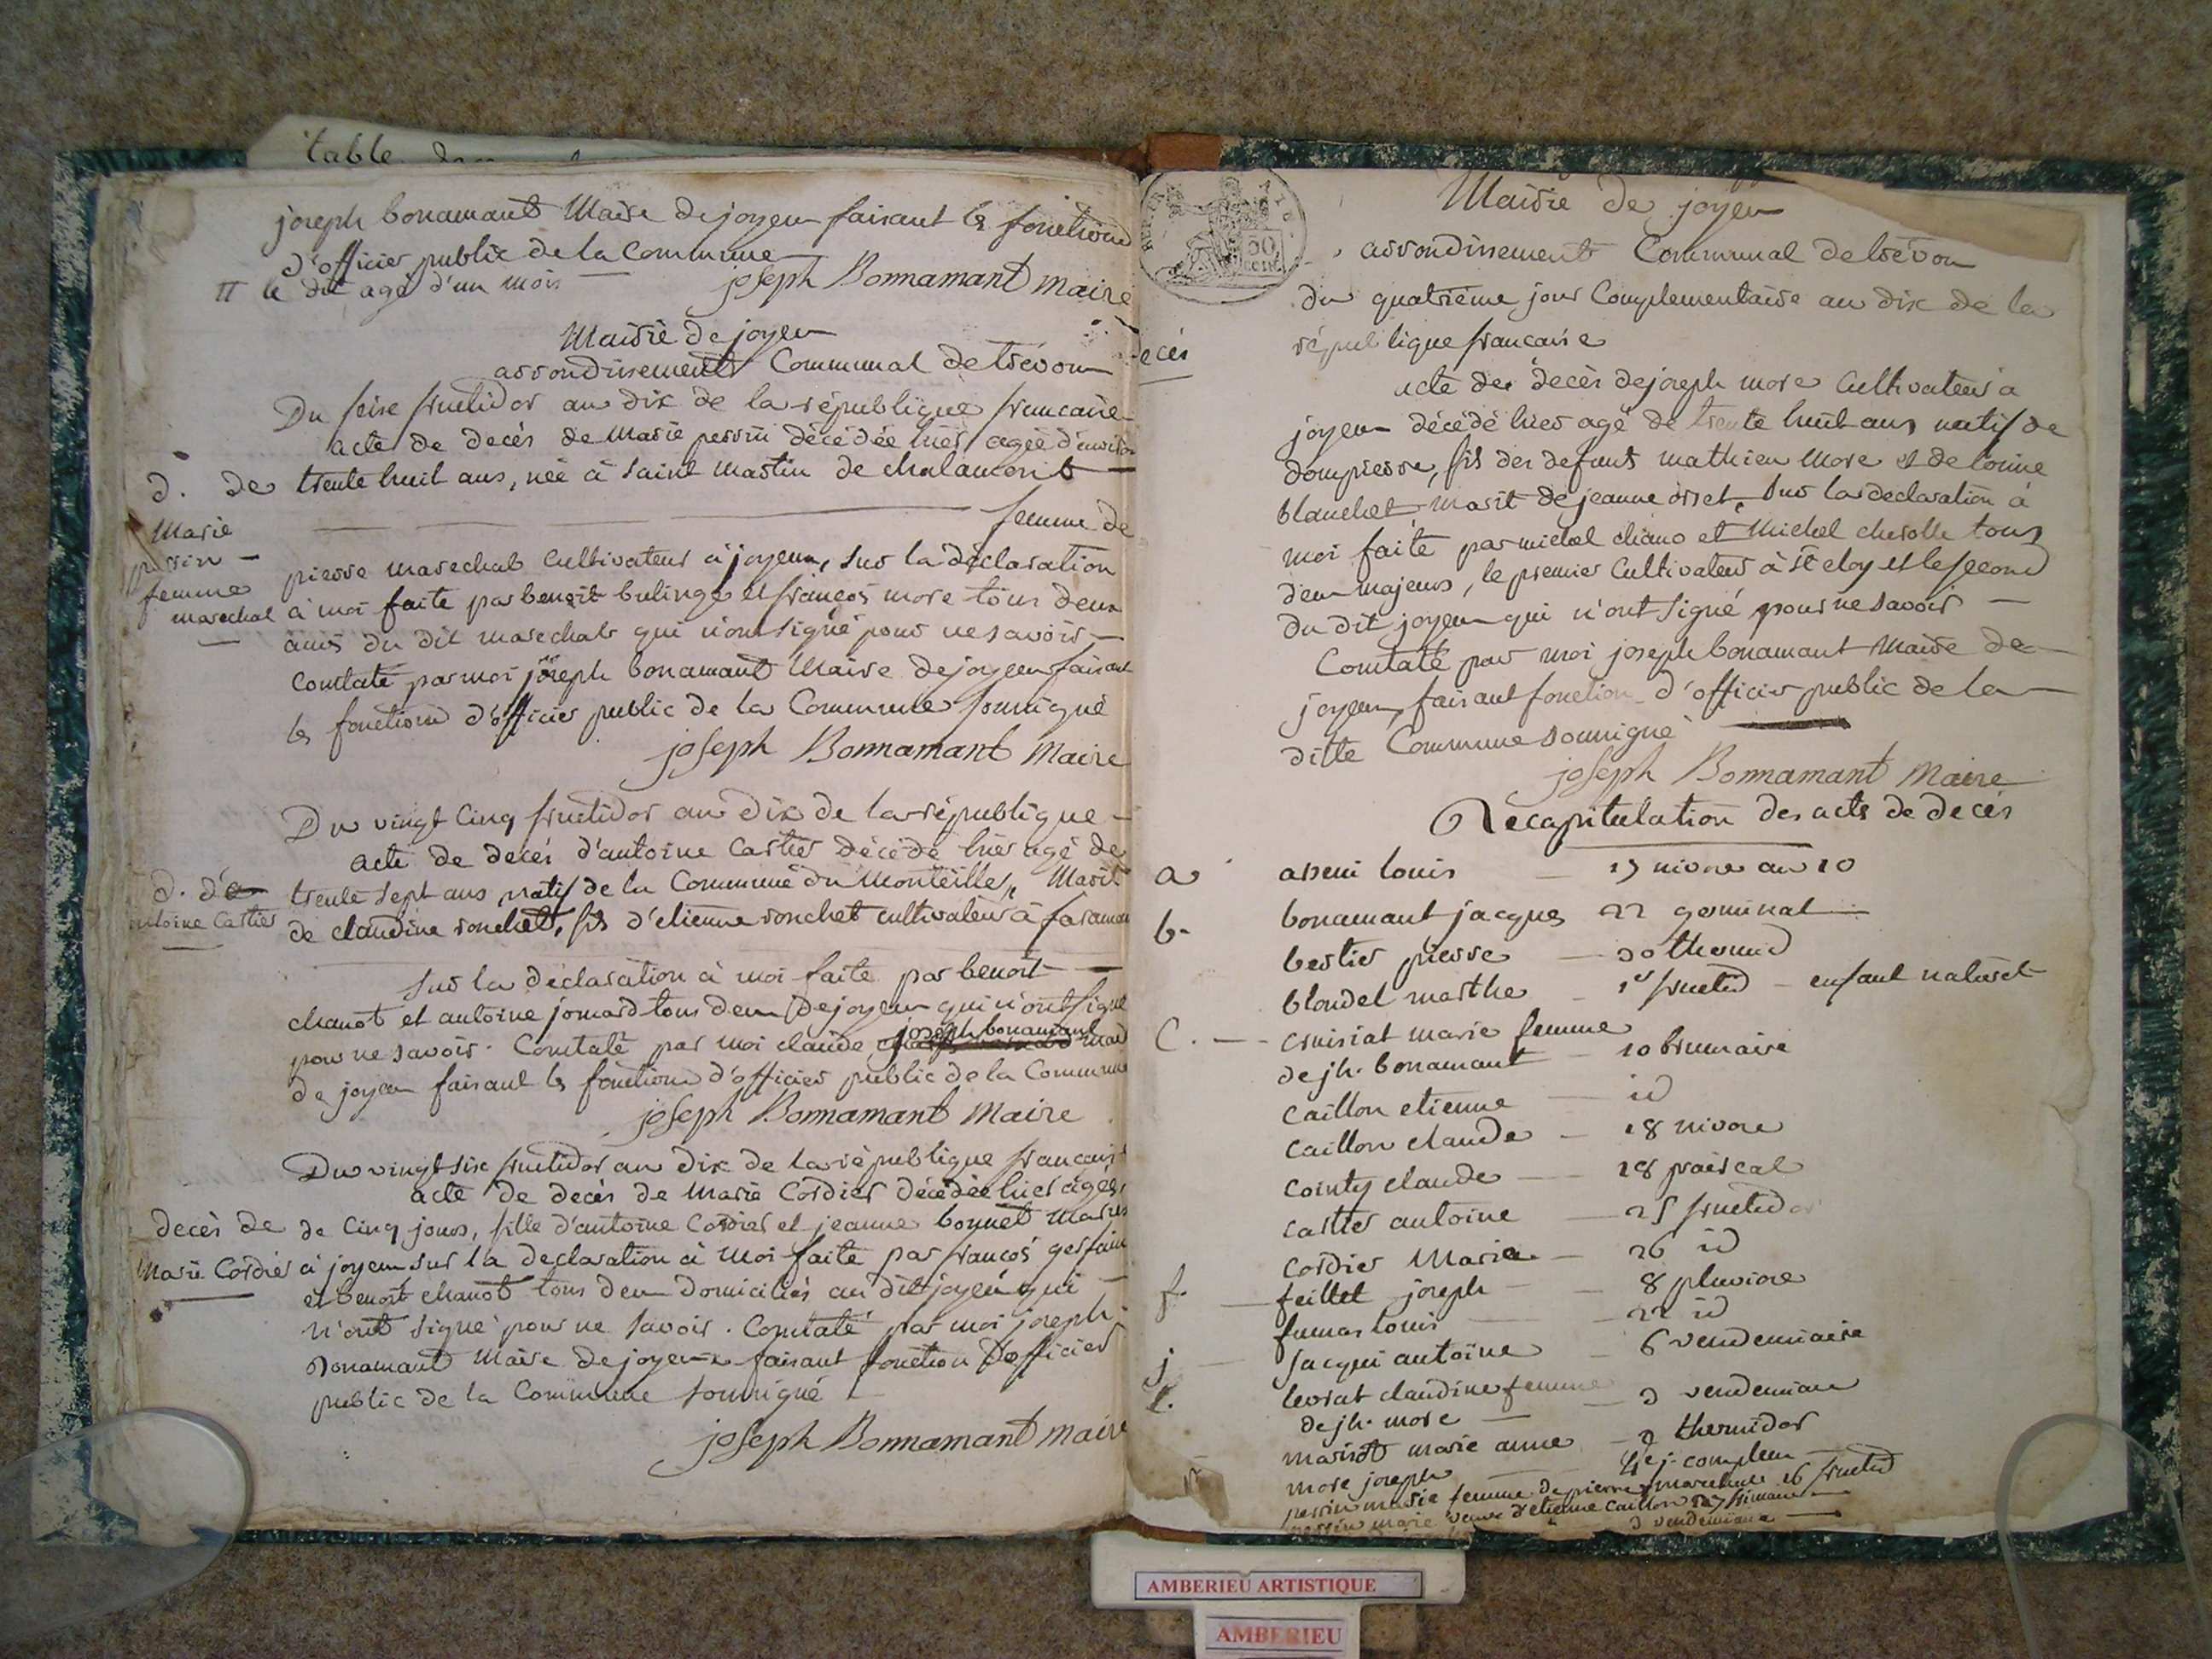 table
joseph bonamant Maire de joyeu faisant les fonctions
d'officier public de la Commune
le dit agé d'un mois joseph Bonnamant maire
Mairie de joyeu
arrondissement Communal de trévoux
Du seise fructidor an dix de la république francaise
acte de decés de Marie perrin décédée hier agée d'environ
d. de trente huit ans, née à saint Martin de chalamont
femme de
Marie
perrin
femme
marechal
pierre marechal Cultivateur à joyeu, sur la déclaration
à moi faite par benoit bulinge et françois more tous deux
amis du dit marechal qui n'ont signé pour ne savoir
Constaté par moi joseph bonamant Maire de joyeu faisant
les fonctions d'officier public de la Commune soussigné
joseph Bonnamant maire
Du vingt Cinq fructidor an dix de la république
acte de decés d'antoine Cartier décédé hier agé de
d. d'
antoine Cartier
trente sept ans natif de la Commune du Montellier, Marit
de claudine ronchet, fils d'etienne ronchet cultivateur à faraman
sur la déclaration à moi faite par benoit
chanot et antoine jomard tous deux de joyeu qui n'ont signé
joseph bonamant
pour ne savoir. Constaté par moi claude maire
de joyeu faisant les fonctions d'officier public de la Commune
joseph Bonnamant maire
Du vingt six fructidor an dix de la république francaise
acte de decés de Marie Cordier décédée hier agée
decés de
Marie Cordier
de Cinq jours, fille d'antoine Cordier et jeanne bonnet Mariés
à joyeu sur la declaration à Moi faite par francois gerfain
et benoit chanot tous deux domiciliés au dit joyeu qui
n'ont signé pour ne savoir. Constaté par moi joseph
Bonamant Maire de joyeux faisant fonction d'officier
public de la Commune soussigné
joseph Bonnamant maire
50
Mairie de joyeu
arrondissement Communal de trévoux
du quatrième jour Complementaire an dix de la
république francaise
decés
acte de decés de joseph more Cultivateur a
joyeu décédé hier agé de trente huit ans natif de
dompierre, fils des defunts mathieu More et de
blanchet, marit de jeanne orset, sur la declaration à
moi faite par michel chano et Michel cherolle tous
deux majeurs, le premier Cultivateur à St eloy et le second
du dit joyeu qui n'ont signé pour ne savoir
Constaté par moi joseph bonamant Maire de
joyeu, faisant fonction d'officier public de la
ditte Commune soussigné
joseph Bonnamant maire
Recapitulation des acts de decés
a arseni louis 13 nivose an 10
b. bonamant jacques 22 germinal
bertier pierre 30 thermid
blondel marthe 1er fructid enfant naturel
C. cruisiat marie femme
de jh. bonamant 10 brumaire
caillon etienne id
caillon claude 18 nivose
cointy claude 28 prairéal
cartier antoine 25 fructidor
cordier Marie 26 id
f. feillet joseph 8 pluviose
fumas louis 22 id
j jacqui antoine 6 vendemiaire
l. levrat claudine femme
de jh. more 3 vendemiaire
marinot marie anne 9 thermidor
more joseph 4e j. complem
perrin marie femme de pierre marechal 16 fructid
perrin marie veuve d'etienne caillon 27 frimaire
3 vendemiaire
AMBERIEU ARTISTIQUE
AMBERIEU